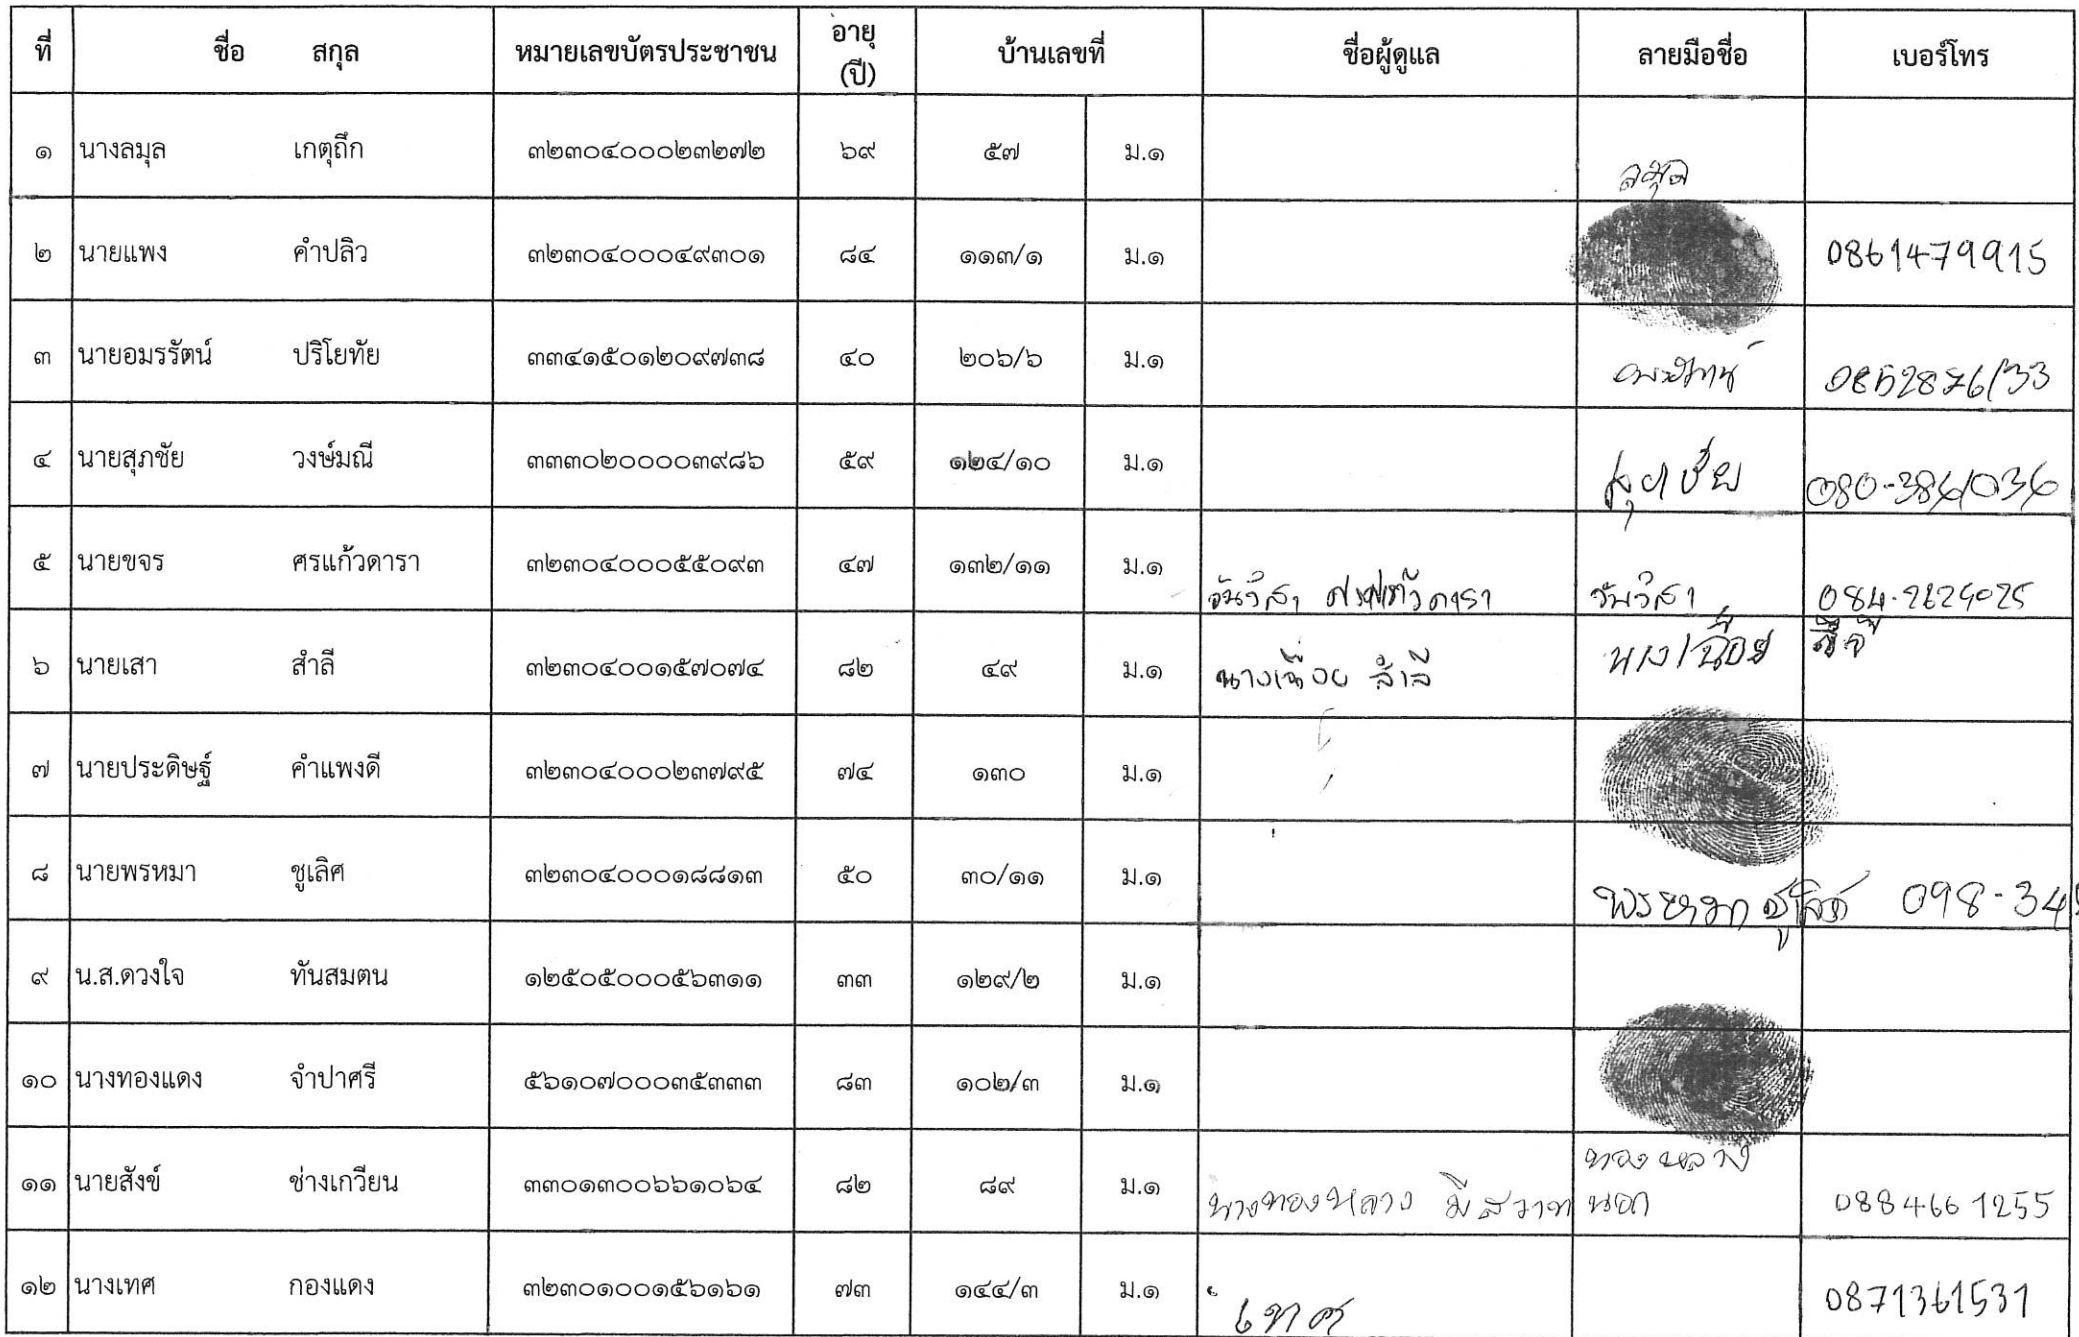 ที่ ชื่อ สกุล หมายเลขบัตรประชาชน อายุ (ปี) บ้านเลขที่ ชื่อผู้ดูแล ลายมือชื่อ เบอร์โทร
๑ นางลมุล เกตุถึก ๓๒๓๐๔๐๐๐๒๓๒๗๒ ๖๙ ๕๗ ม.๑ ลมุล
๒ นายแพง คำปลิว ๓๒๓๐๔๐๐๐๔๙๓๐๑ ๘๔ ๑๑๓/๑ ม.๑ 0861479915
๓ นายอมรรัตน์ ปริโยทัย ๓๓๔๑๕๐๑๒๐๙๗๓๘ ๔๐ ๒๐๖/๖ ม.๑
๔ นายสุภชัย วงษ์มณี ๓๓๓๐๒๐๐๐๐๓๙๘๖ ๕๙ ๑๒๔/๑๐ ม.๑
๕ นายขจร ศรแก้วดารา ๓๒๓๐๔๐๐๐๕๕๐๙๓ ๔๗ ๑๓๒/๑๑ ม.๑ จันวิสา ศรแก้วดารา วันวิสา
๖ นายเสา สำลี ๓๒๓๐๔๐๐๑๕๗๐๗๔ ๘๒ ๔๙ ม.๑ นางเฉื่อย สำลี นางเฉื่อย
๗ นายประดิษฐ์ คำแพงดี ๓๒๓๐๔๐๐๐๒๓๗๙๕ ๗๔ ๑๓๐ ม.๑
๘ นายพรหมา ชูเลิศ ๓๒๓๐๔๐๐๐๑๘๘๑๓ ๕๐ ๓๐/๑๑ ม.๑ พรหมา ชูเลิศ 098-34
๙ น.ส.ดวงใจ ทันสมตน ๑๒๕๐๕๐๐๐๕๖๓๑๑ ๓๓ ๑๒๙/๒ ม.๑
๑๐ นางทองแดง จำปาศรี ๕๖๑๐๗๐๐๐๓๕๓๓๓ ๘๓ ๑๐๒/๓ ม.๑
๑๑ นายสังข์ ช่างเกวียน ๓๓๐๑๓๐๐๖๖๑๐๖๔ ๘๒ ๘๙ ม.๑ นางทองหลาง มีสวาท ทองหลาง นอก 0884661255
๑๒ นางเทศ กองแดง ๓๒๓๐๑๐๐๑๕๖๑๖๑ ๗๓ ๑๔๔/๓ ม.๑ เทศ 0871361531